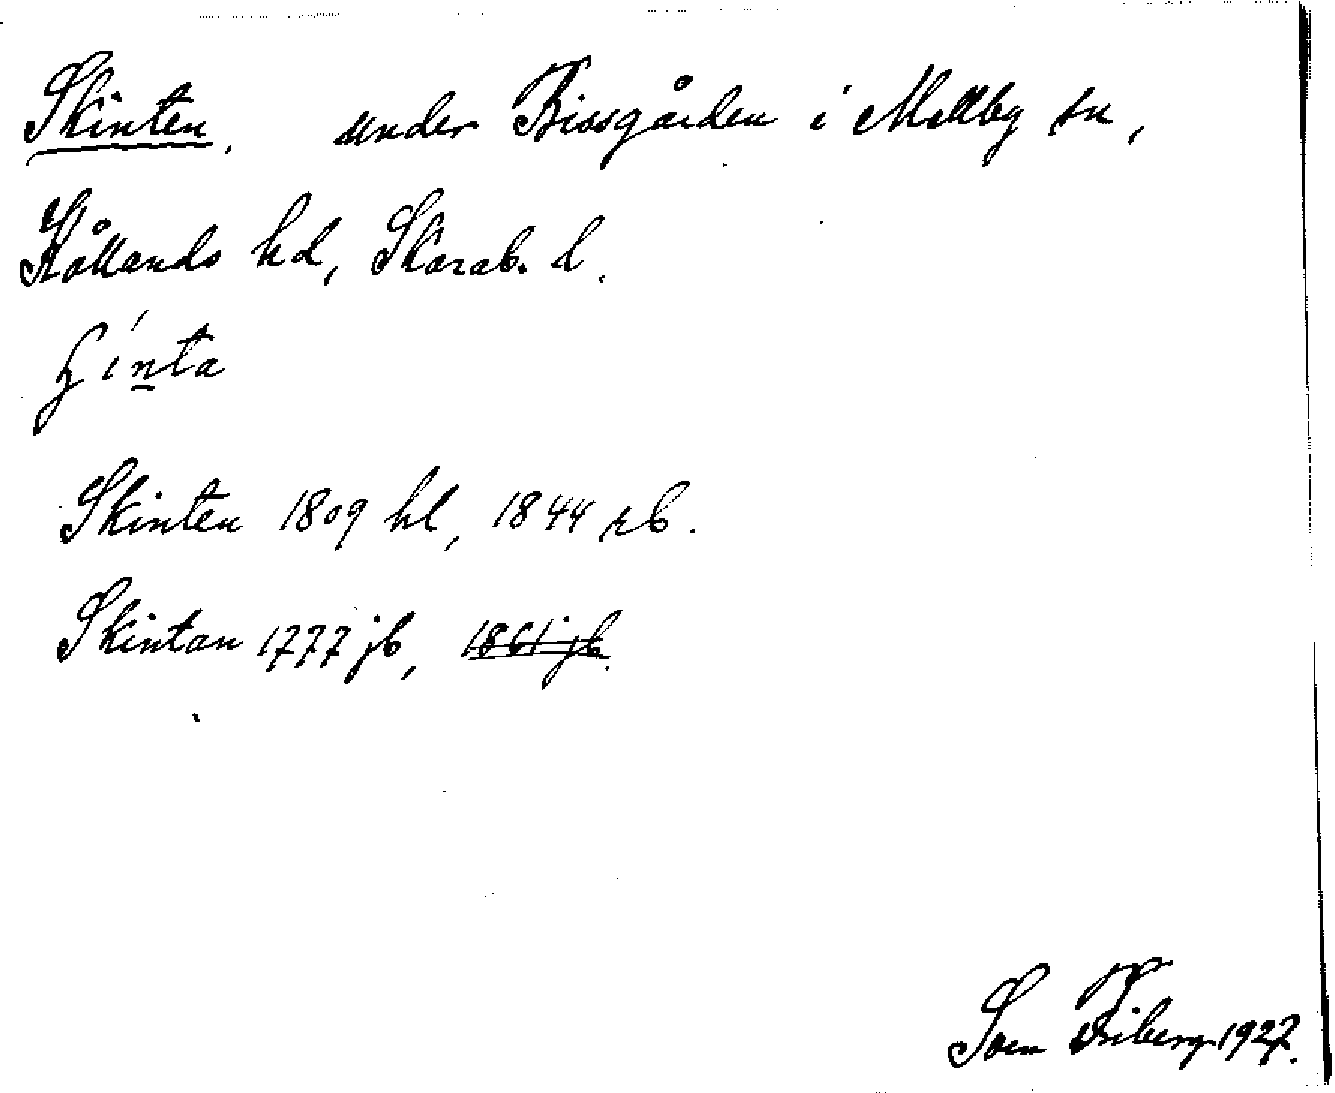 Skinten, under Bissgården i Mellby sn,
Kållands hd, Skarab. l.
ʃínta
Skinten 1809 hl, 1844 rb.
Skintan 1777 jb, 1861 jb.
Sven Friberg 1927.